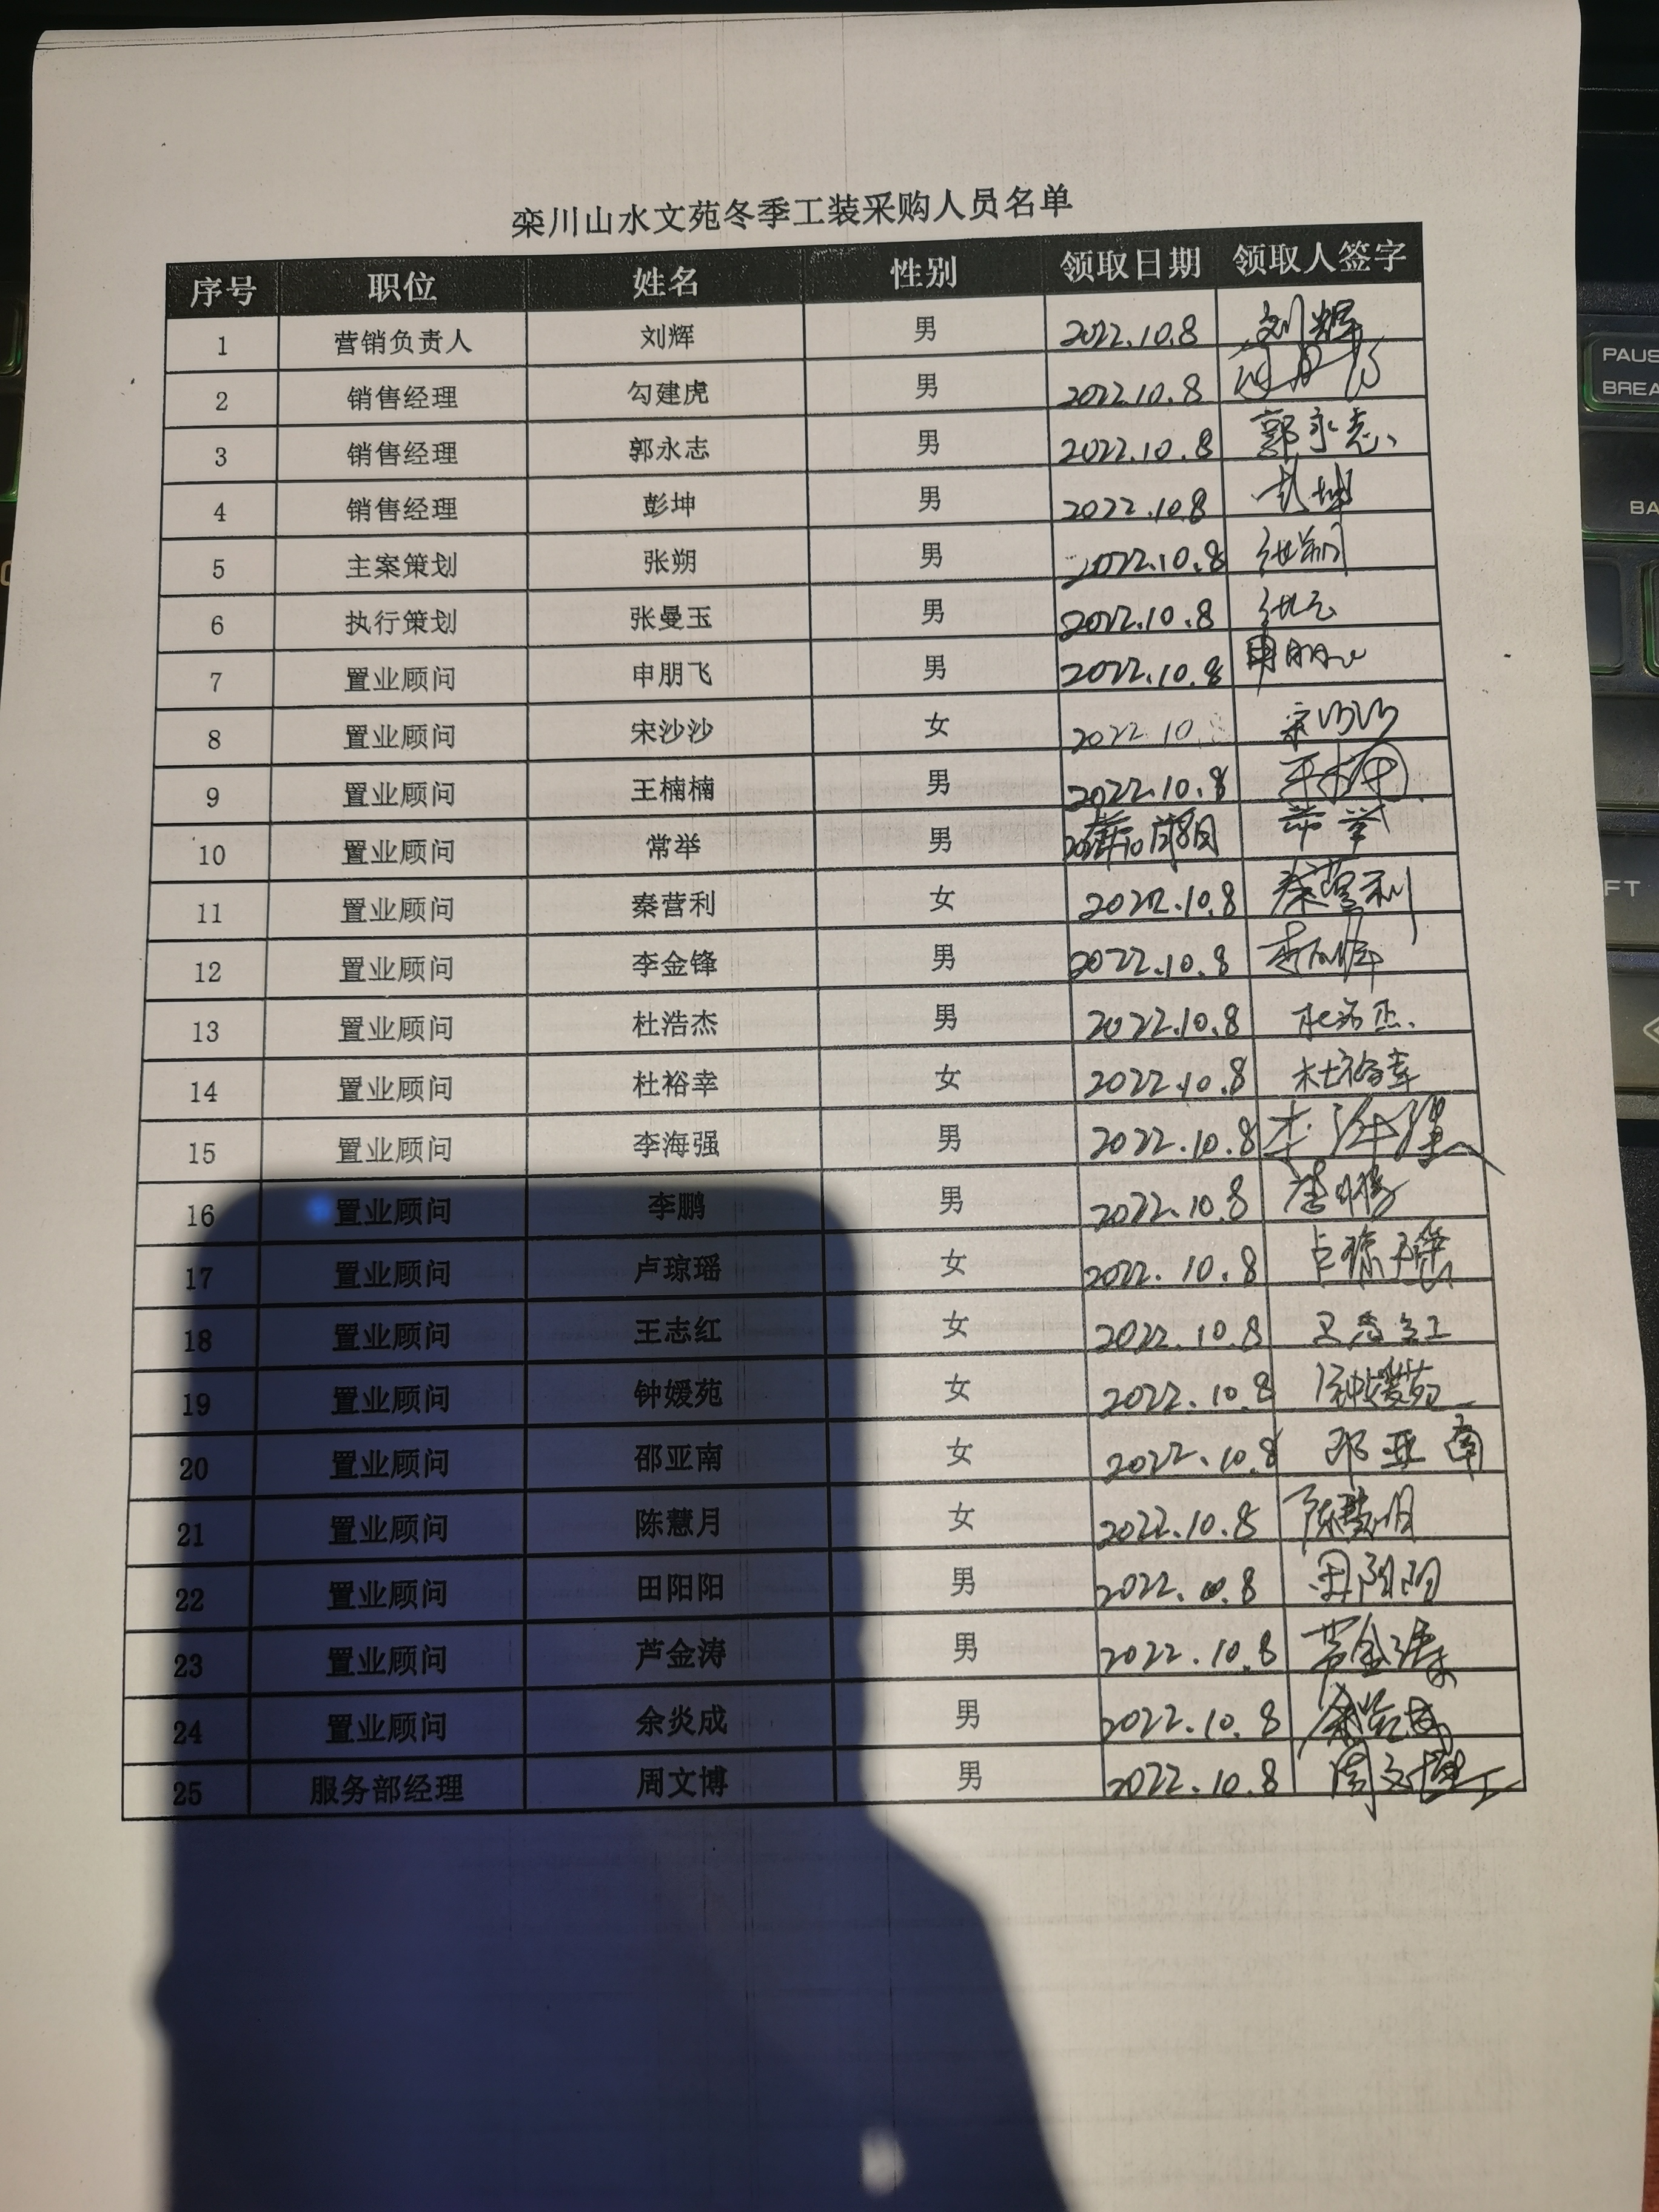 栾川山水文苑冬季工装采购人员名单
序号 职位 姓名 性别 领取日期 领取人签字
1 营销负责人 刘辉 男 2022.10.8 刘辉
2 销售经理 勾建虎 男 2022.10.8
3 销售经理 郭永志 男 2022.10.8 郭永志
4 销售经理 彭坤 男 2022.10.8 彭坤
5 主案策划 张朔 男 2022.10.8 张朔
6 执行策划 张曼玉 男 2022.10.8
7 置业顾问 申朋飞 男 2022.10.8 申朋飞
8 置业顾问 宋沙沙 女 2022.10.8 宋沙沙
9 置业顾问 王楠楠 男 2022.10.8
10 置业顾问 常举 男 常举
11 置业顾问 秦营利 女 2022.10.8 秦营利
12 置业顾问 李金锋 男 2022.10.8 李金锋
13 置业顾问 杜浩杰 男 2022.10.8 杜浩杰
14 置业顾问 杜裕幸 女 2022.10.8 杜裕幸
15 置业顾问 李海强 男 2022.10.8 李海强
16 置业顾问 李鹏 男 2022.10.8 李鹏
17 置业顾问 卢琼瑶 女 2022.10.8 卢琼瑶
18 置业顾问 王志红 女 2022.10.8 王志红
19 置业顾问 钟媛苑 女 2022.10.8 钟媛苑
20 置业顾问 邵亚南 女 2022.10.8 邵亚南
21 置业顾问 陈慧月 女 2022.10.8 陈慧月
22 置业顾问 田阳阳 男 2022.10.8 田阳阳
23 置业顾问 芦金涛 男 2022.10.8 芦金涛
24 置业顾问 余炎成 男 2022.10.8 余炎成
25 服务部经理 周文博 男 2022.10.8 周文博
PAUS
BREA
BA
FT